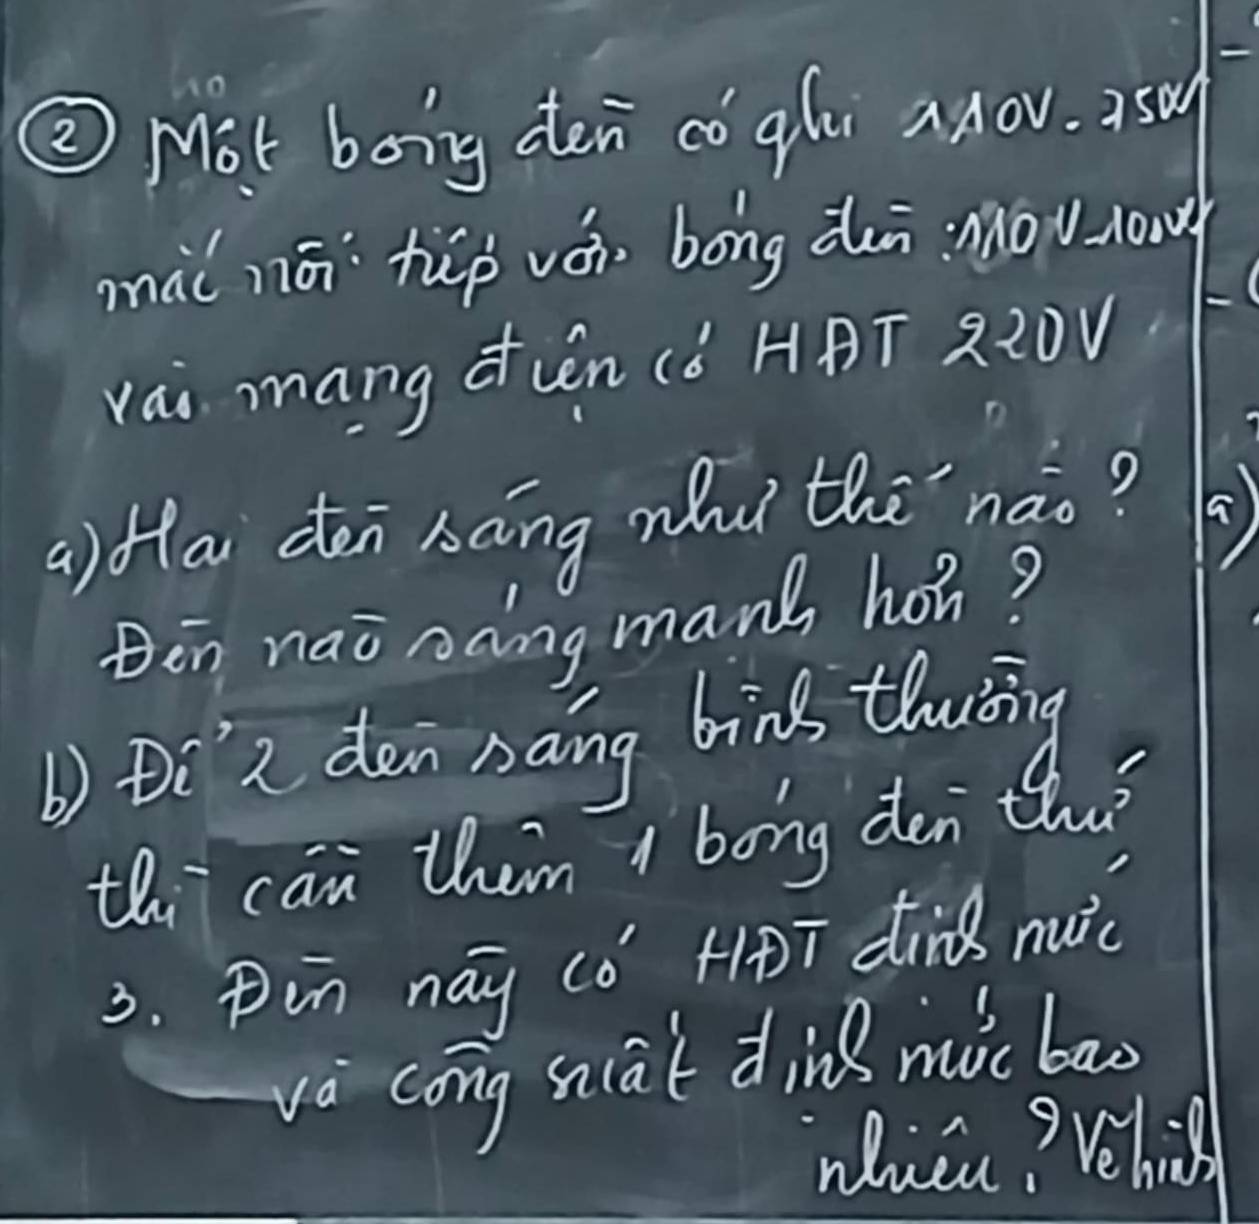 ② Một bóng đèn có ghi 110V - 25W
mắc nối tiếp với bóng đèn : 110V - 100W
vào mạng điện có HĐT 220V
a) Hai đèn sáng như thế nào ?
Đèn nào sáng mạnh hơn ?
b) Để 2 đèn sáng bình thường
thì cần thêm 1 bóng đèn thứ
3. Đèn này có HĐT định mức
và công suất định mức bao
nhiêu ? Vẽ hình
a)